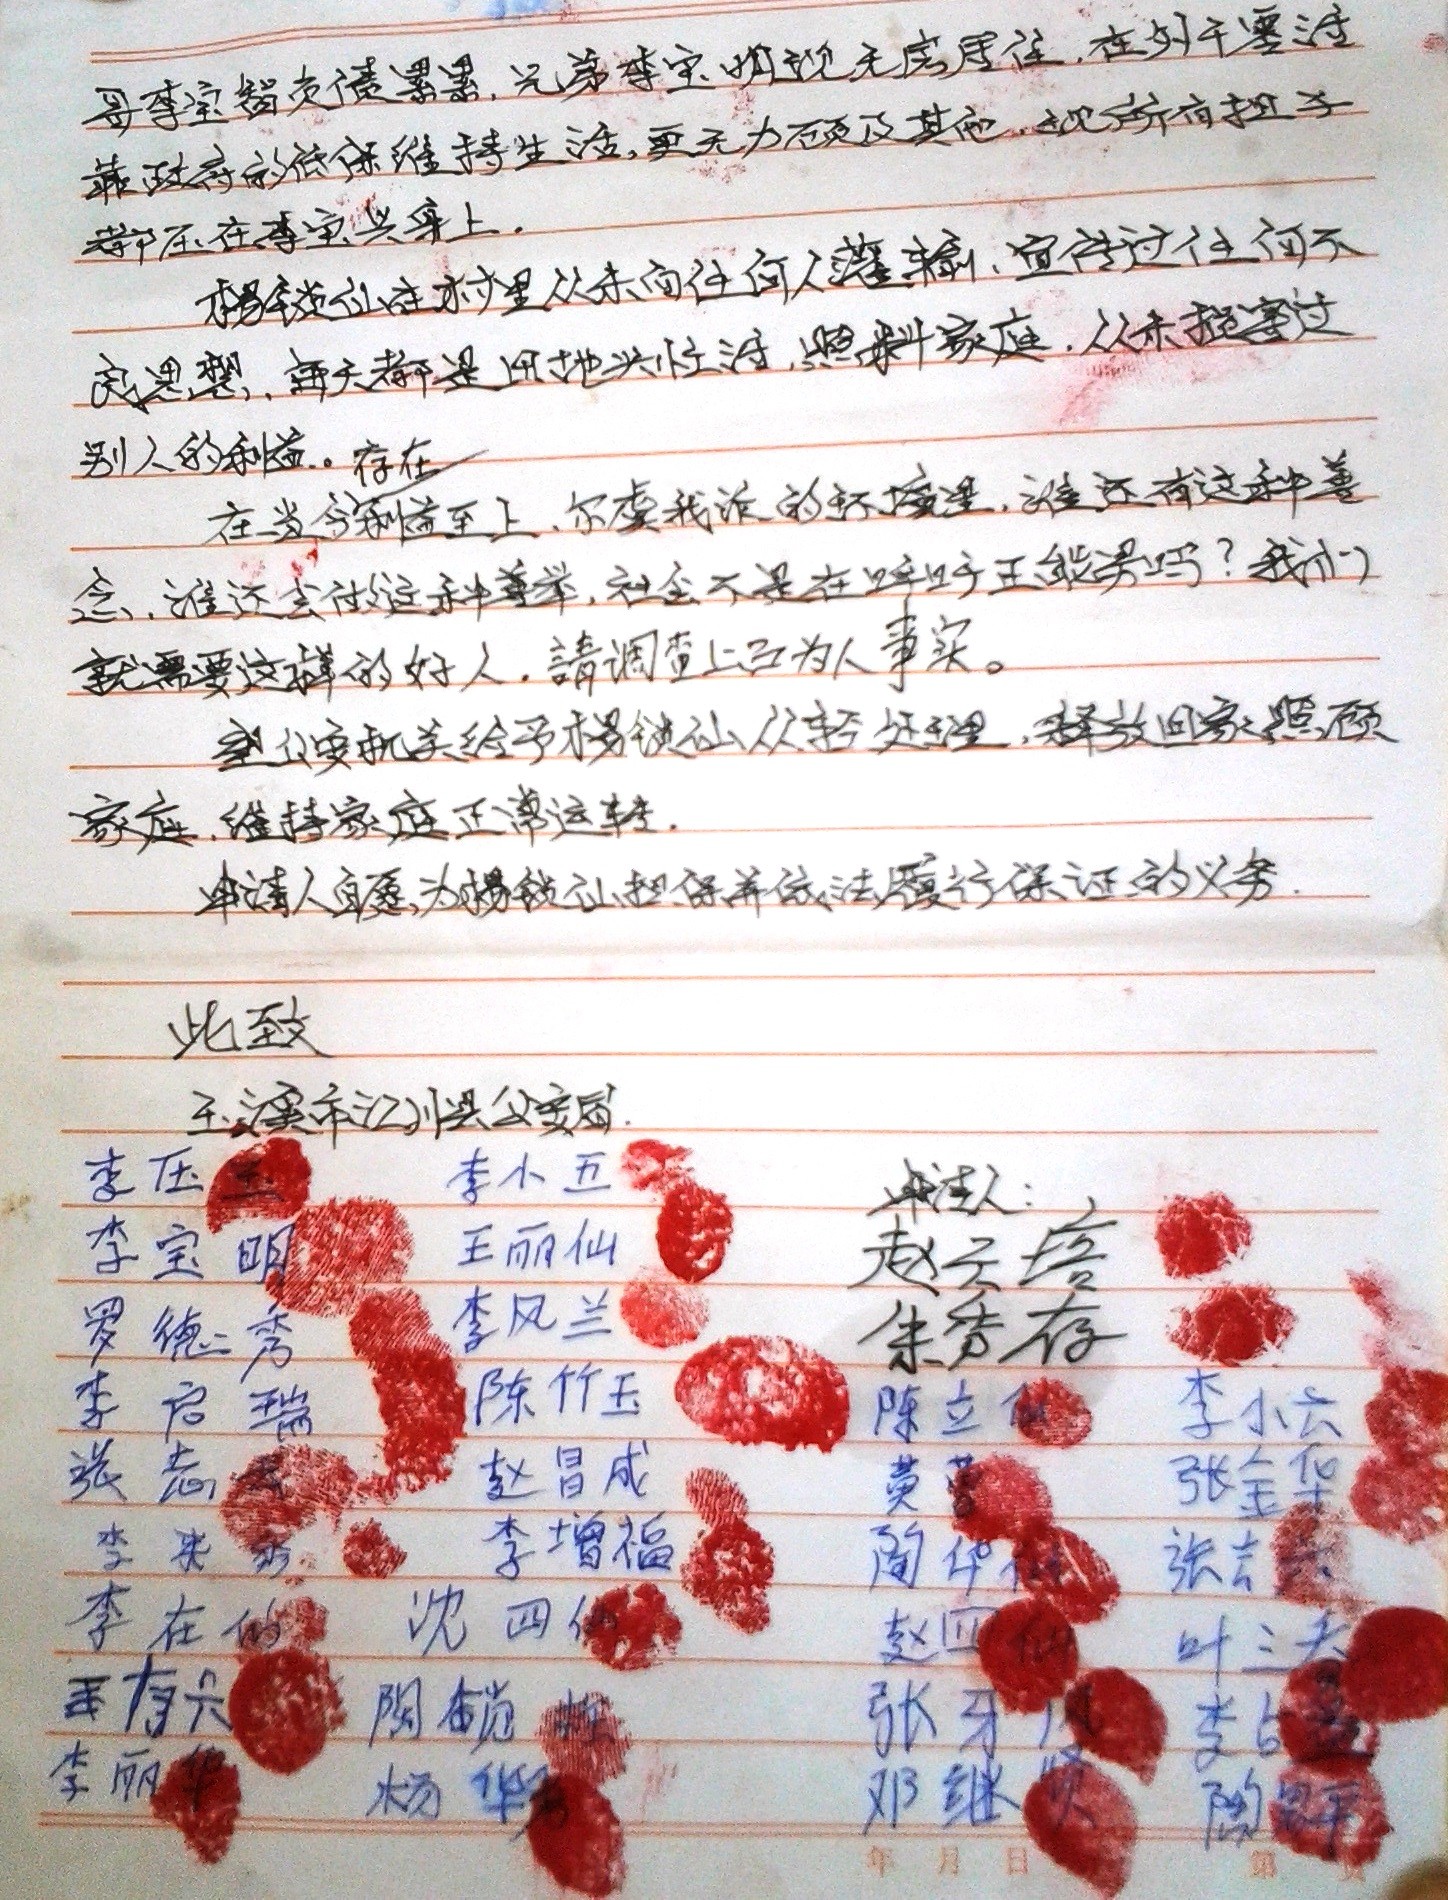 哥李宝智负债累累，兄弟李宝明现无房居住，在外干零活
靠政府的低保维持生活，更无力顾及其他，现所有担子
都压在李宝兴身上．
杨锁仙在村里从未向任何人灌输、宣传过任何不
良思想，每天都是田地兴忙活，照料家庭，从未损害过
别人的利益．。存在
在当今利益至上、尔虞我诈的环境里，谁还有这种善
念，谁还会做这种善举，社会不是在呼吁正能量吗？我们
就需要这样的好人．請调查上己为人事实。
望公安机关给予杨锁仙从轻处理，释放回家照顾
家庭，维持家庭正常运转．
申请人自愿为杨锁仙担保并依法履行保证的义务．
此致
玉溪市江川县公安局．
申请人：
李压玉 李小五 赵云培
李宝明 王丽仙 朱秀存
罗德秀 李凤兰
李启瑞 陈竹玉 陈立仙 李小六
张志 赵昌成 黄 张金华
李 秀 李增福 陶华仙 张吉
李在仙 沈四仙 赵四仙 叶三
王有兴 陶锁 张牙凤 李占
李丽华 杨华 邓继贤 陶思平
年 月 日 第 页